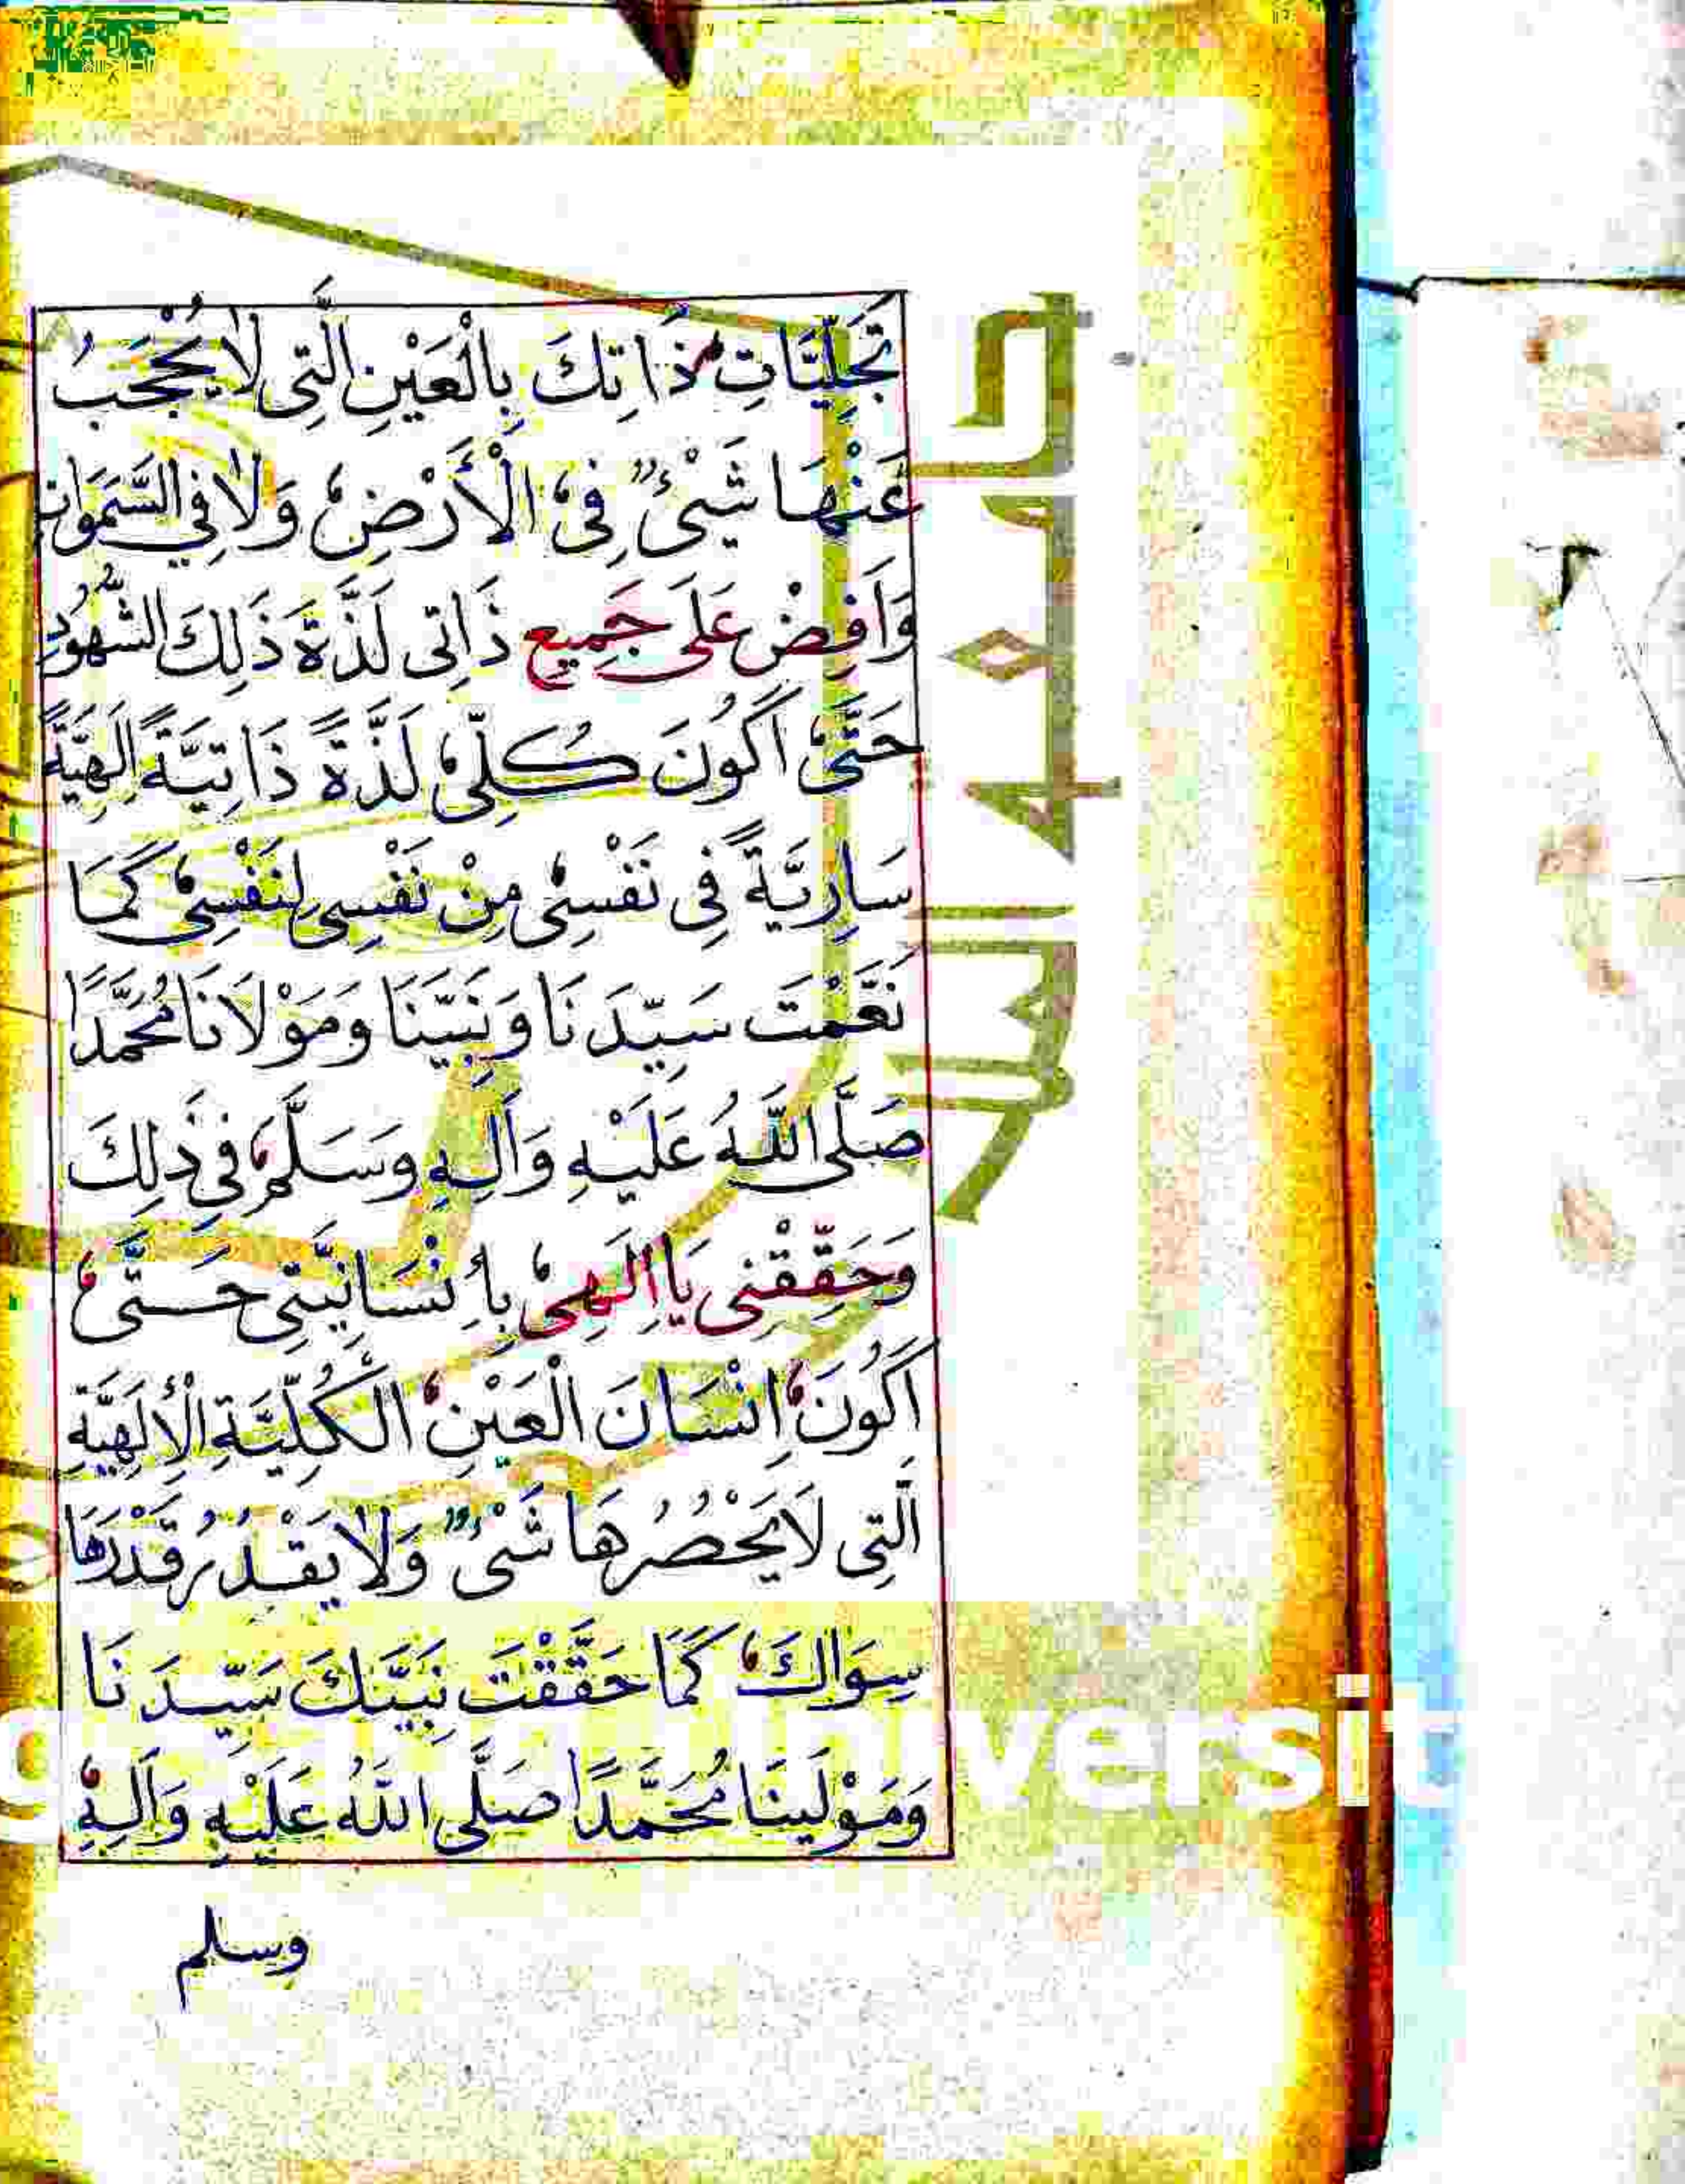 تَجَلِّيَّاتِ ذَاتِكَ بِالْعَيْنِ الَّتِى لَا يُحْجَبُ
عَنْهَا شَىْءٌ فِى الْأَرْضِ وَلَا فِي السَّمَوَاتِ
وَاَفِضْ عَلَى جَمِيعِ ذَاتِى لَذَّةَ ذَلِكَ الشُّهُودِ
حَتَّى اَكُونَ كُلِّى لَذَّةً ذَاتِيَّةً اِلَهِيَّةً
سَارِيَّةً فِى نَفْسِى مِنْ نَفْسِى لِنَفْسِى كَمَا
نَعَّمْتَ سَيِّدَنَا وَنَبِيَّنَا وَمَوْلَانَا مُحَمَّدًا
صَلَّى اللَّهُ عَلَيْهِ وَآلِهِ وَسَلَّمَ فِي ذَلِكَ
وَحَقِّقْنِى يَا اِلَهِى بِاِنْسَانِيَّتِى حَتَّى
اَكُونَ اِنْسَانَ الْعَيْنِ الْكُلِّيَّةِ الْإِلَهِيَّةِ
الَّتِى لَا يَحْصُرُهَا شَىْءٌ وَلَا يَقْدُرُ قَدْرَهَا
سِوَاكَ كَمَا حَقَّقْتَ نَبِيَّكَ سَيِّدَنَا
وَمَوْلَينَا مُحَمَّدًا صَلَّى اللَّهُ عَلَيْهِ وَآلِهِ
وسلم
جامعة الملك
versit